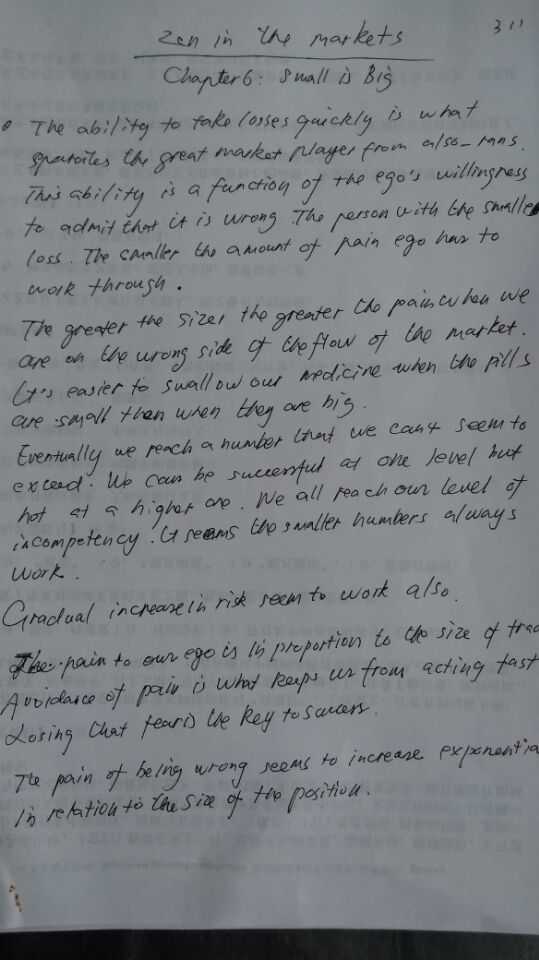 311
Zen in the markets
Chapter 6: Small is Big
The ability to take losses quickly is what
sparates the great market player from also-rans.
This ability is a function of the ego's willingness
to admit that it is wrong The person with the smaller
loss. The smaller the amount of pain ego has to
work through.
The greater the size, the greater the pain when we
are on the wrong side of the flow of the market.
It's easier to swallow our medicine when the pills
are small then when they are big.
Eventually we reach a number that we can't seem to
exceed. We can be successful at one level but
not at a higher one. We all reach our level of
incompetency. It seems the smaller numbers always
work.
Gradual increase in risk seem to work also.
The pain to our ego is in proportion to the size of trad
Avoidance of pain is what keeps us from acting fast
Losing that fear is the key to success.
The pain of being wrong seems to increase exponentia
in relation to the size of the position.